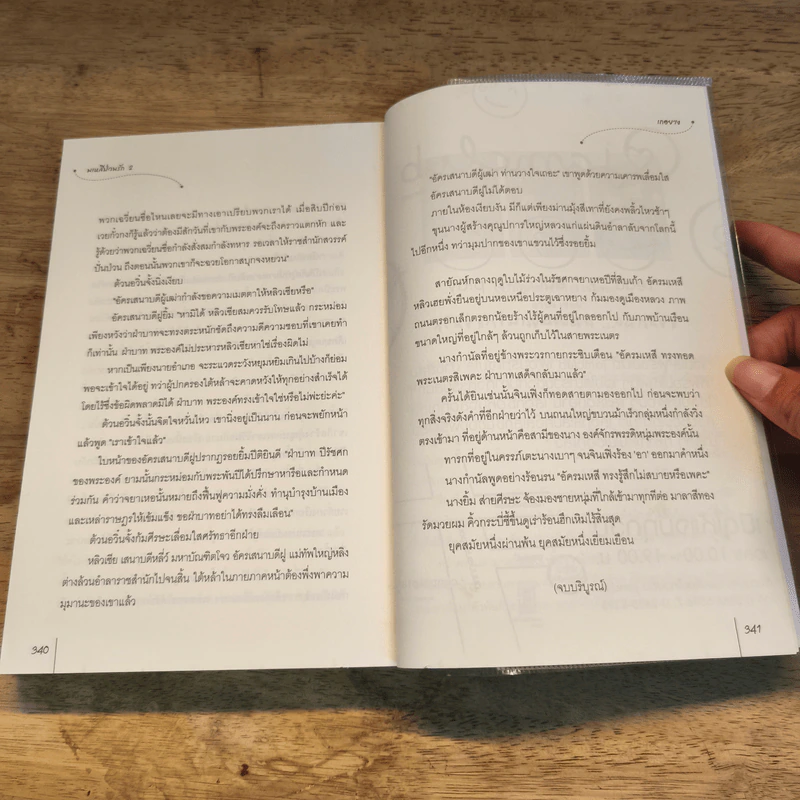 มาณสีปักษ์รัก 2
พวกเฉวี่ยนชื่อไหนเลยจะมีทางเอาเปรียบพวกเราได้ เมื่อสิบปีก่อน
เวยกั๋วกงก็รู้แล้วว่าต้องมีสักวันที่เขากับพระองค์จะถึงคราวแตกหัก และ
รู้ด้วยว่าพวกเฉวี่ยนชื่อกำลังสั่งสมกำลังทหาร รอเวลาให้ราชสำนักสวรรค์
ปั่นป่วน ถึงตอนนั้นพวกเขาก็จะฉวยโอกาสบุกจงหยวน"
ต้วนอวิ๋นจั้งนิ่งเงียบ
"อัครเสนาบดีผู้เฒ่ากำลังขอความเมตตาให้หลิวเซียหรือ"
อัครเสนาบดีฝู่ยิ้ม "หามิได้ หลิวเซียสมควรรับโทษแล้ว กระหม่อม
เพียงหวังว่าฝ่าบาทจะทรงตระหนักชัดถึงความดีความชอบที่เขาเคยทำ
ก็เท่านั้น ฝ่าบาท พระองค์ไม่ประหารหลิวเซียหาใช่เรื่องผิดไม่
หากเป็นเพียงนายอำเภอ จะระแวดระวังหยุมหยิมเกินไปบ้างก็ย่อม
พอจะเข้าใจได้อยู่ ทว่าผู้ปกครองใต้หล้าจะคาดหวังให้ทุกอย่างสำเร็จได้
โดยไร้ซึ่งข้อผิดพลาดมิได้ ฝ่าบาท พระองค์ทรงเข้าใจใช่หรือไม่พ่ะย่ะค่ะ"
ต้วนอวิ๋นจั้งนั้นจิตใจหวั่นไหว เขานิ่งอยู่เป็นนาน ก่อนจะพยักหน้า
แล้วพูด "เราเข้าใจแล้ว"
ใบหน้าของอัครเสนาบดีฝู่ปรากฏรอยยิ้มปีติยินดี "ฝ่าบาท ปีรัชศก
ของพระองค์ ยามนั้นกระหม่อมกับพระพันปีได้ปรึกษาหารือและกำหนด
ร่วมกัน คำว่าจยาเหอนั้นหมายถึงฟื้นฟูความมั่งคั่ง ทำนุบำรุงบ้านเมือง
และเหล่าราษฎรให้เข้มแข็ง ขอฝ่าบาทอย่าได้ทรงลืมเลือน"
ต้วนอวิ๋นจั้งก้มศีรษะเลื่อมใสศรัทธาอีกฝ่าย
หลิวเซีย เสนาบดีหลี่ว์ มหาบัณฑิตโจว อัครเสนาบดีฝู่ แม่ทัพใหญ่หลิง
ต่างล้วนอำลาราชสำนักไปจนสิ้น ใต้หล้าในภายภาคหน้าต้องพึ่งพาความ
มุมานะของเขาแล้ว
340
เกอยาง
"อัครเสนาบดีผู้เฒ่า ท่านวางใจเถอะ" เขาพูดด้วยความเคารพเลื่อมใส
อัครเสนาบดีฝู่ไม่ได้ตอบ
ภายในห้องเงียบงัน มีก็แต่เพียงม่านมุ้งสีเทาที่ยังคงพลิ้วไหวช้าๆ
ขุนนางผู้สร้างคุณูปการใหญ่หลวงแก่แผ่นดินอำลาลับจากโลกนี้
ไปอีกหนึ่ง ทว่ามุมปากของเขาแขวนไว้ซึ่งรอยยิ้ม
สายัณห์กลางฤดูใบไม้ร่วงในรัชศกจยาเหอปีที่สิบเก้า อัครมเหสี
หลิวเฮยพั่งยืนอยู่บนหอเหนือประตูเฉาหยาง ก้มมองดูเมืองหลวง ภาพ
ถนนตรอกเล็กตรอกน้อยร้างไร้ผู้คนที่อยู่ไกลออกไป กับภาพบ้านเรือน
ขนาดใหญ่ที่อยู่ใกล้ๆ ล้วนถูกเก็บไว้ในสายพระเนตร
นางกำนัลที่อยู่ข้างพระวรกายกระซิบเตือน "อัครมเหสี ทรงทอด
พระเนตรสิเพคะ ฝ่าบาทเสด็จกลับมาแล้ว"
ครั้นได้ยินเช่นนั้นจินเฟิ่งก็ทอดสายตามองออกไป ก่อนจะพบว่า
ทุกสิ่งจริงดังคำที่อีกฝ่ายว่าไว้ บนถนนใหญ่ขบวนม้าเร็วกลุ่มหนึ่งกำลังวิ่ง
ตรงเข้ามา ที่อยู่ด้านหน้าคือสามีของนาง องค์จักรพรรดิหนุ่มพระองค์นั้น
ทารกที่อยู่ในครรภ์เตะนางเบาๆ จนจินเฟิ่งร้อง 'อา' ออกมาคำหนึ่ง
นางกำนัลพูดอย่างร้อนรน "อัครมเหสี ทรงรู้สึกไม่สบายหรือเพคะ"
นางยิ้ม ส่ายศีรษะ จ้องมองชายหนุ่มที่ใกล้เข้ามาทุกทีต่อ มาลาสีทอง
รัดมวยผม คิ้วกระบี่ชี้ขึ้นดูเร่าร้อนฮึกเหิมไร้สิ้นสุด
ยุคสมัยหนึ่งผ่านพ้น ยุคสมัยหนึ่งเยี่ยมเยือน
(จบบริบูรณ์)
341